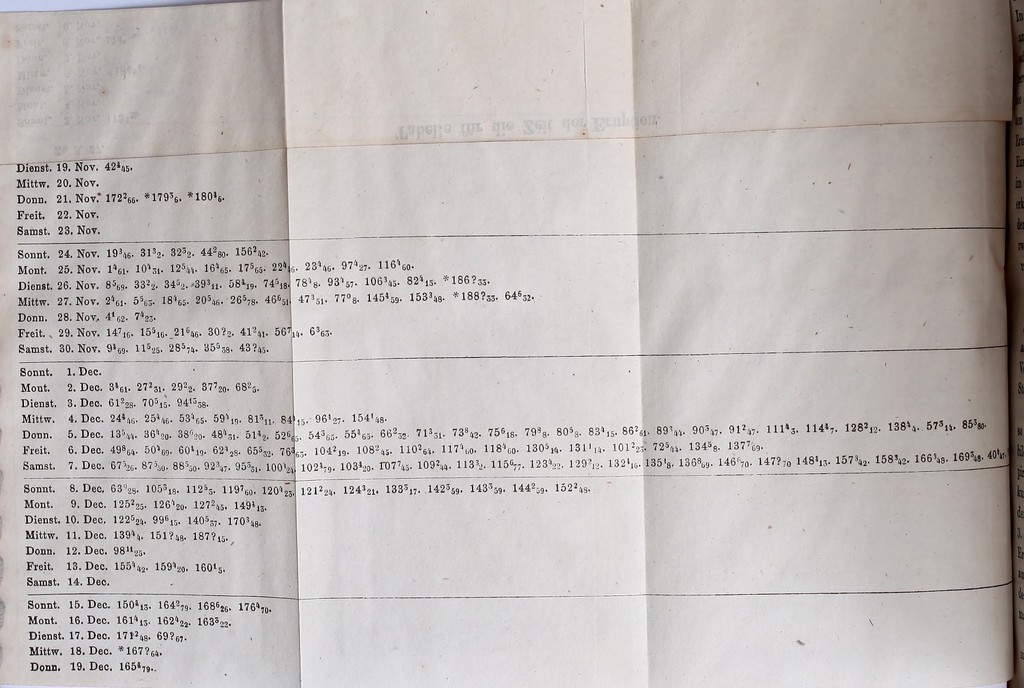 Tabelle für die Zeit der Eruption.
Dienst. 19. Nov. 42⁴₄₅.
Mittw. 20. Nov.
Donn. 21. Nov. 172²₆₆. *179³₆. *180⁴₆.
Freit. 22. Nov.
Samst. 23. Nov.
Sonnt. 24. Nov. 19³₄₆. 31³₂. 32³₂. 44²₈₀. 156²₄₂.
Mont. 25. Nov. 1⁴₆₁. 10⁴₃₁. 12⁵₄₄. 16⁴₆₅. 17⁵₆₅. 23⁴₄₆. 97⁴₂₇. 116⁴₆₀.
Dienst. 26. Nov. 8⁵₆₉. 33²₂. 34⁵₂. 39³₁₁. 58⁴₁₉. 74⁵₁₈. 78⁴₈. 93⁴₅₇. 106³₄₅. 82⁴₁₅. *186?₃₃.
Mittw. 27. Nov. 2⁴₆₁. 5⁵₆₃. 18⁴₆₅. 20⁵₄₆. 26⁶₇₈. 46⁶₅₁. 47³₅₁. 77⁰₈. 145⁴₅₉. 153³₄₈. *188?₃₃. 64⁶₃₂.
Donn. 28. Nov. 4⁴₆₂. 7⁴₂₃.
Freit. 29. Nov. 14⁷₁₆. 15⁵₁₆. 21⁶₄₆. 30?₂. 41²₄₁. 56⁷₁₄. 6³₆₃.
Samst. 30. Nov. 9⁴₆₉. 11⁵₂₅. 28⁵₇₄. 35⁵₃₈. 43?₄₅.
Sonnt. 1. Dec.
Mont. 2. Dec. 3⁴₆₁. 27²₃₁. 29²₂. 37⁷₂₀. 68²₅.
Dienst. 3. Dec. 61²₂₈. 70⁵₁₅. 94¹⁵₃₈.
Mittw. 4. Dec. 24⁴₄₆. 25⁴₄₆. 53⁴₆₅. 59⁴₁₉. 81³₁₁. 96⁴₂₇. 154⁴₄₈.
Donn. 5. Dec. 13⁵₄₄. 36⁴₂₀. 38⁶₂₀. 48⁴₃₁. 51⁴₂. 54³₆₅. 55⁴₆₅. 66²₃₂. 71³₃₁. 73⁸₄₂. 75⁶₁₈. 79⁸₈. 80⁵₈. 83⁴₁₅. 86²₆₁. 89³₄₄. 90³₄₇. 91²₄₇. 111⁴₃. 114⁴₇. 128²₁₂. 138⁴₄. 57³₁₄. 85³₈₀.
Freit. 6. Dec. 49⁸₆₄. 50⁴₆₉. 60⁴₁₉. 62⁴₂₈. 65⁵₃₂. 104²₁₉. 108²₄₅. 110²₆₄. 117⁴₆₀. 118⁴₆₀. 130⁵₁₄. 131⁴₁₄. 101²₂₃. 72⁵₄₄. 134⁵₈. 137⁷₆₉.
Samst. 7. Dec. 67⁵₂₆. 87⁵₅₀. 88⁵₅₀. 92³₄₇. 95⁵₃₁. 100⁴₂₄. 102⁴₇₉. 103⁴₂₀. 107⁷₄₅. 109²₄₄. 113³₂. 115⁶₇₇. 123³₂₂. 129⁷₁₂. 132⁴₁₆. 135⁴₈. 136⁸₆₉. 146⁶₇₀. 147?₇₀ 148⁴₁₃. 157³₄₂. 158³₄₂. 166³₄₈. 169³₄₈.
Sonnt. 8. Dec. 63⁵₂₈. 105³₁₈. 112⁵₅. 119⁷₆₀. 120⁴₂₃. 121²₂₄. 124³₂₁. 133⁵₁₇. 142⁵₅₉. 143³₅₉. 144²₅₉. 152²₄₈.
Mont. 9. Dec. 125²₂₅. 126⁴₂₀. 127²₄₅. 149⁴₁₃.
Dienst. 10. Dec. 122⁵₂₄. 99⁶₁₅. 140⁵₃₇. 170³₄₈.
Mittw. 11. Dec. 139⁴₄. 151?₄₈. 187?₁₅.
Donn. 12. Dec. 98¹¹₂₅.
Freit. 13. Dec. 155⁴₄₂. 159⁴₂₀. 160⁴₅.
Samst. 14. Dec.
Sonnt. 15. Dec. 150⁴₁₃. 164²₇₉. 168⁶₂₆. 176⁴₇₀.
Mont. 16. Dec. 161⁴₁₃. 162⁴₂₂. 163⁵₂₂.
Dienst. 17. Dec. 171²₄₈. 69?₆₇.
Mittw. 18. Dec. *167?₆₄.
Donn. 19. Dec. 165⁴₇₉.